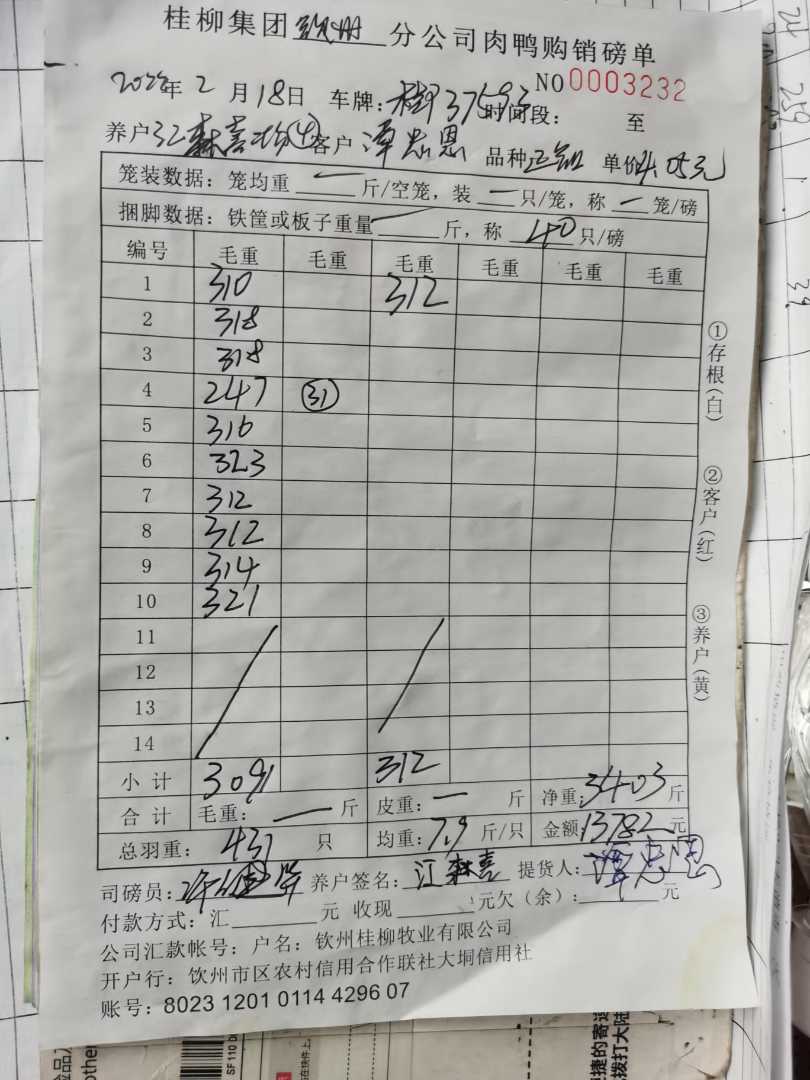 桂柳集团钦州分公司肉鸭购销磅单
NO 0003232
2022年2月18日 车牌: 37593 时间段: 至
养户 32 森喜 客户 潭忠恩 品种 单价4.05元
笼装数据: 笼均重 一 斤/空笼, 装 一 只/笼, 称 一 笼/磅
捆脚数据: 铁筐或板子重量 一 斤, 称 40 只/磅
编号 毛重 毛重 毛重 毛重 毛重 毛重
1 310 312
2 318
3 318
4 247 31
5 316
6 323
7 312
8 312
9 314
10 321
11
12
13
14
小计 3091 312
合计 毛重: 一 斤 皮重: 一 斤 净重: 3403 斤
总羽重: 431 只 均重: 7.9 斤/只 金额: 13782 元
司磅员: 养户签名: 江森喜 提货人: 潭忠恩
付款方式: 汇 元 收现 元欠(余): 元
公司汇款帐号: 户名: 钦州桂柳牧业有限公司
开户行: 钦州市区农村信用合作联社大垌信用社
账号: 8023 1201 0114 4296 07
①存根(白)
②客户(红)
③养户(黄)
24
259
39
other
SF 110 D
捷的寄
拨打大陆